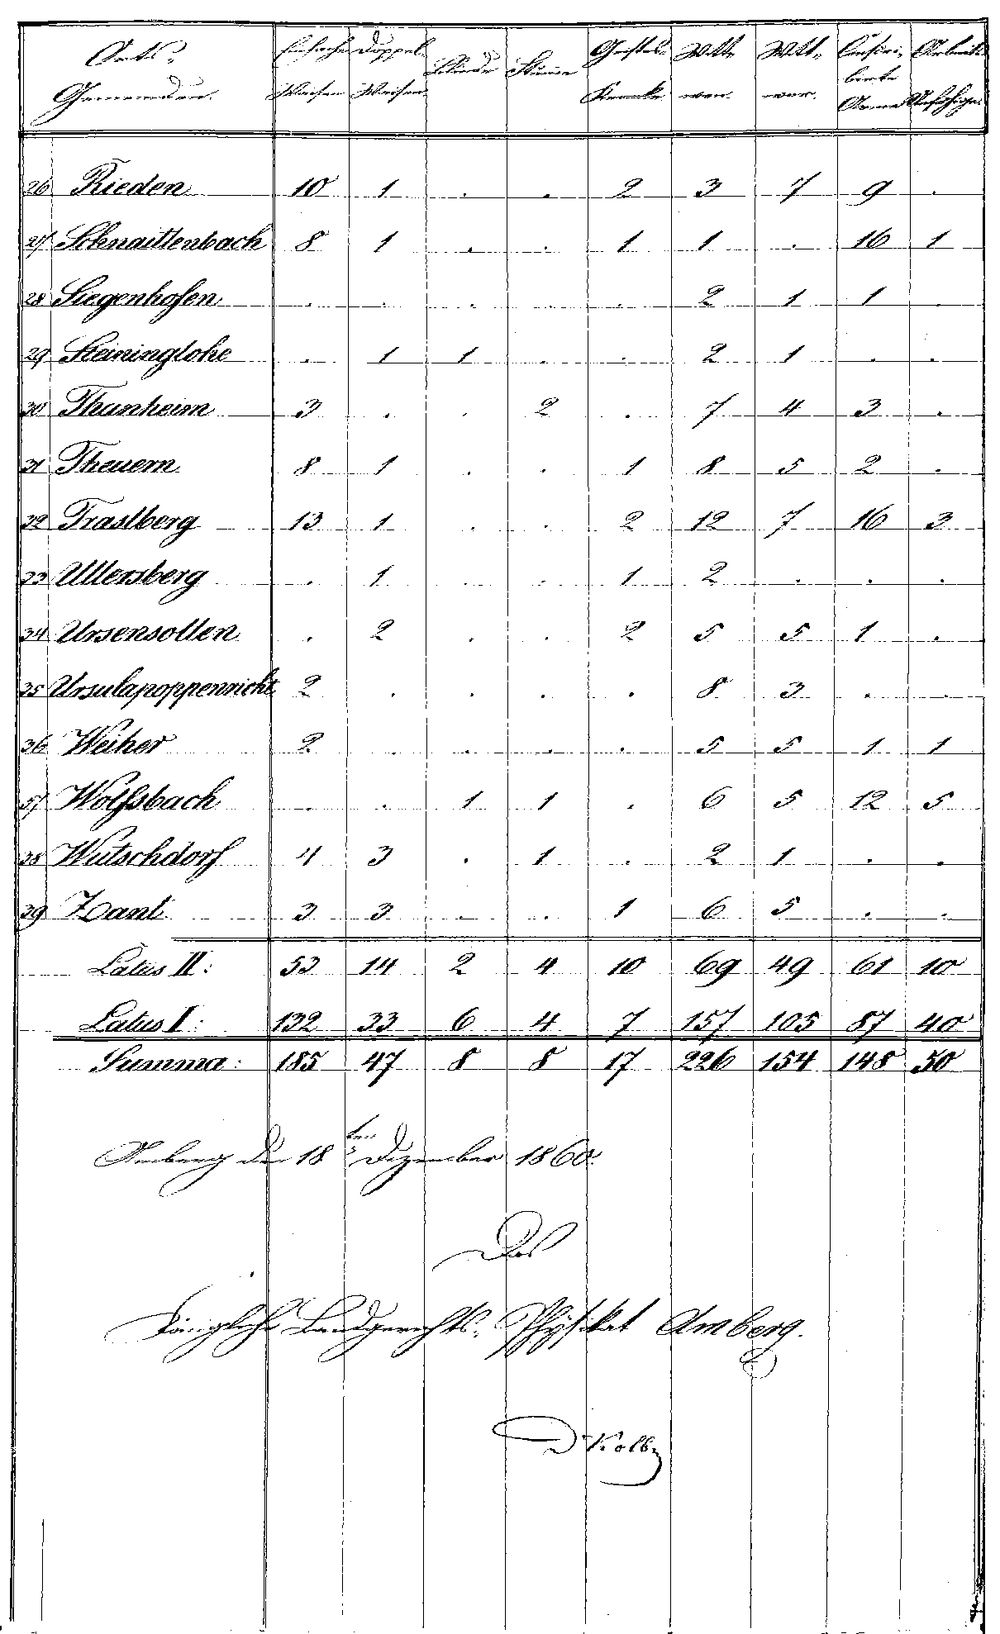 Orts- Gemeinden. Einfache Waisen Doppel- Waisen Blinde Stumme Geistes- Kranke Witt- wen. Witt- wer. Conscri- birte Arme Arbeits- Unfähige.
26 Rieden 10 1 . . 2 3 7 9 .
27 Schnaittenbach 8 1 . . 1 1 . 16 1
28 Siegenhofen . . . . . 2 1 1 .
29 Steininglohe . 1 1 . . 2 1 . .
30 Thanheim 3 . . 2 . 7 4 3 .
31 Theuern 8 1 . . 1 8 5 2 .
32 Traslberg 13 1 . . 2 12 7 16 3
33 Ullersberg . 1 . . 1 2 . . .
34 Ursensollen . 2 . . 2 5 5 1 .
35 Ursulapoppenricht 2 . . . . 8 3 . .
36 Weiher 2 . . . . 5 5 1 1
37 Wolfsbach . . 1 1 . 6 5 12 5
38 Wutschdorf 4 3 . 1 . 2 1 . .
39 Zant 3 3 . . 1 6 5 . .
Latus II: 53 14 2 4 10 69 49 61 10
Latus I: 132 33 6 4 7 157 105 87 40
Summa: 185 47 8 8 17 226 154 148 50
Amberg den 18ten Dezember 1860.
Das
Königliche Landgerichts- Physikat Amberg.
Dr Kolb